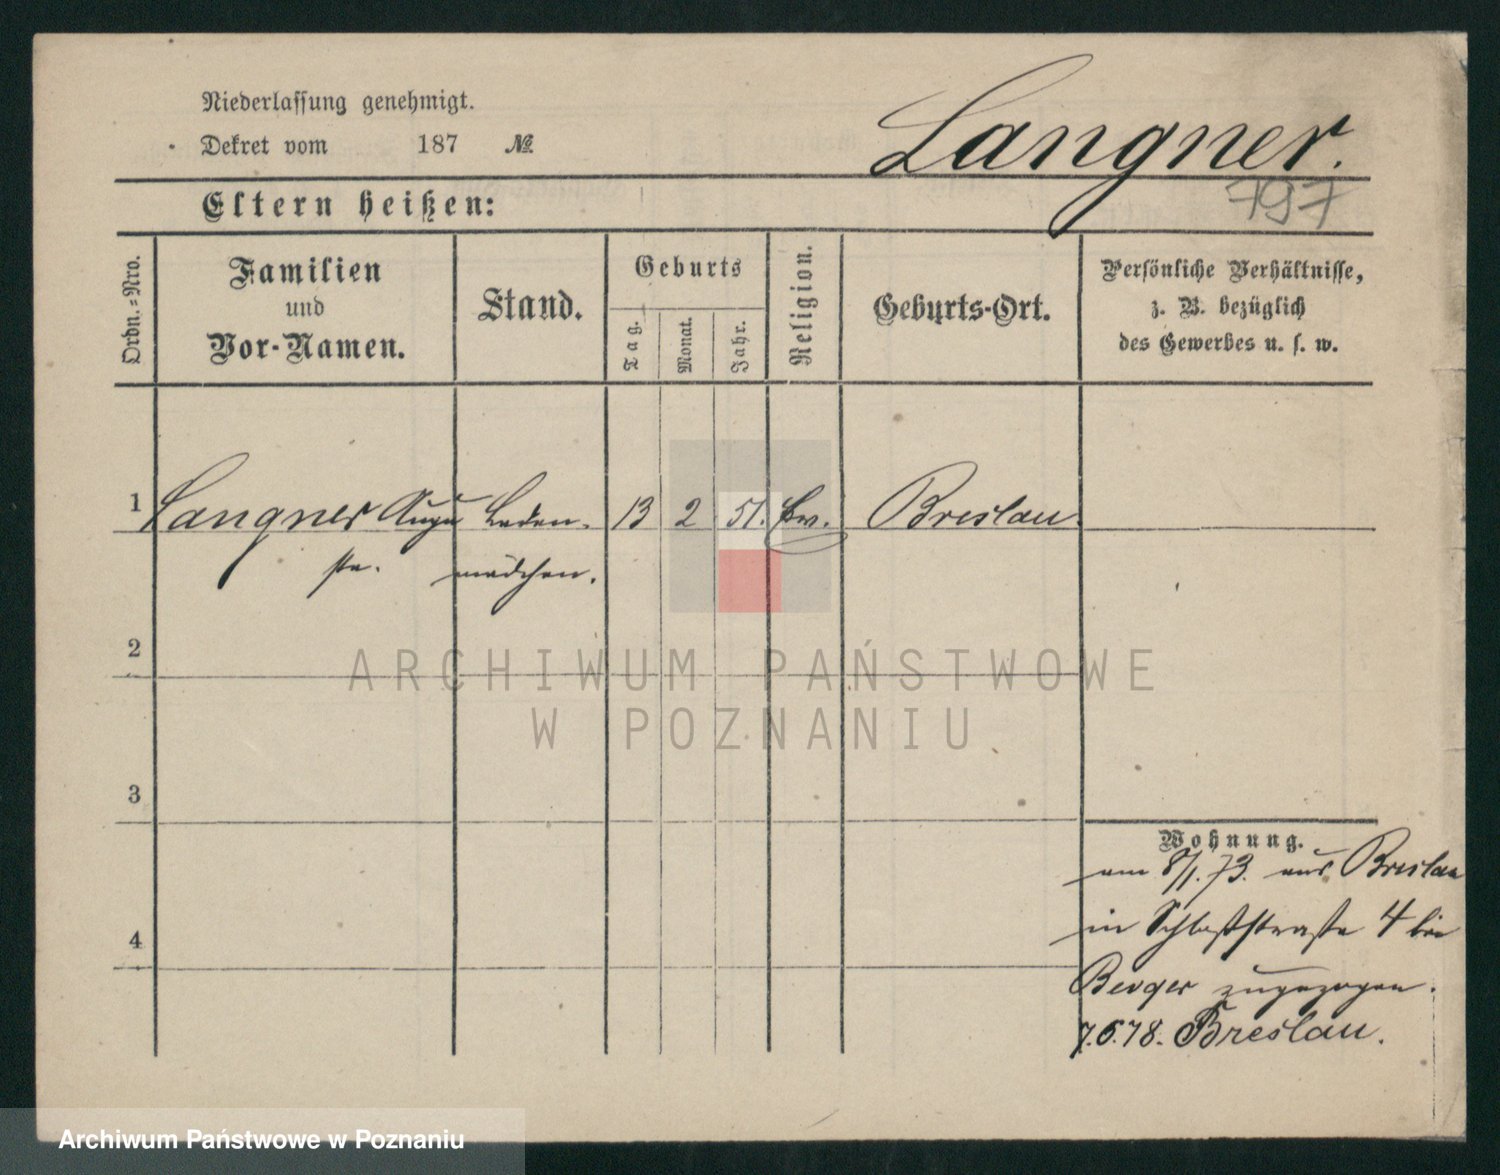 Niederlassung genehmigt.
Dekret vom 187 №
Langner.
797
Eltern heißen:
Ordn.-Nro.
Familien
und
Vor-Namen.
Stand.
Geburts
Tag.
Monat.
Jahr.
Religion.
Geburts-Ort.
Persönliche Verhältnisse,
z. B. bezüglich
des Gewerbes u. s. w.
1 Langner Augu Laden- 13 2 51. Ev. Breslau.
ste. mädchen.
2
3
4
Wohnung.
am 8/1. 73. aus Breslau
in Schloßstraße 4 bei
Berger zugezogen.
7.6.78. Breslau.
ARCHIWUM PAŃSTWOWE
W POZNANIU
Archiwum Państwowe w Poznaniu